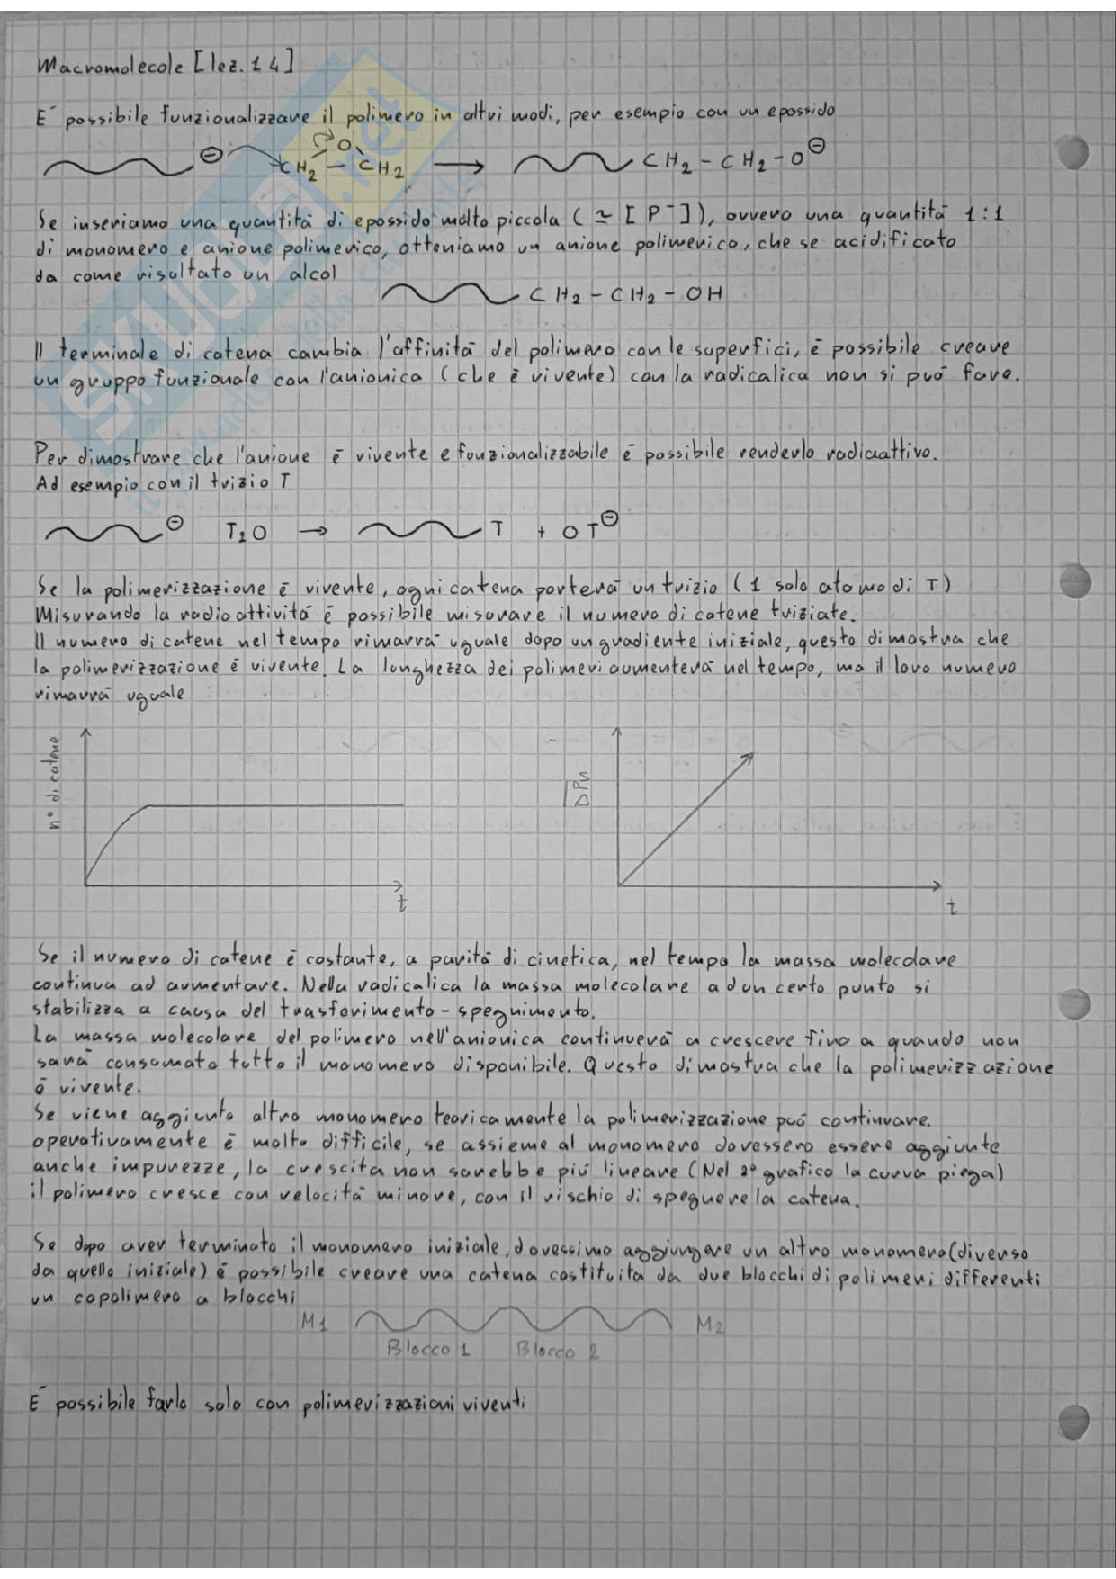 Macromolecole [lez. 14]
E' possibile funzionalizzare il polimero in altri modi, per esempio con un epossido
⊖ CH2 - CH2 O → CH2 - CH2 - O⊖
Se inseriamo una quantità di epossido molto piccola (≃ [P⁻]), ovvero una quantità 1:1
di monomero e anione polimerico, otteniamo un anione polimerico, che se acidificato
da come risultato un alcol
CH2 - CH2 - OH
Il terminale di catena cambia l'affinità del polimero con le superfici, è possibile creare
un gruppo funzionale con l'anionica (che è vivente) con la radicalica non si può fare.
Per dimostrare che l'anione è vivente e funzionalizzabile è possibile renderlo radioattivo.
Ad esempio con il trizio T
⊖ T2O → T + OT⊖
Se la polimerizzazione è vivente, ogni catena porterà un trizio (1 solo atomo di T)
Misurando la radioattività è possibile misurare il numero di catene triziate.
Il numero di catene nel tempo rimarrà uguale dopo un gradiente iniziale, questo dimostra che
la polimerizzazione è vivente. La lunghezza dei polimeri aumenterà nel tempo, ma il loro numero
rimarrà uguale
n° di catene
t
DPn
t
Se il numero di catene è costante, a parità di cinetica, nel tempo la massa molecolare
continua ad aumentare. Nella radicalica la massa molecolare ad un certo punto si
stabilizza a causa del trasferimento - spegnimento.
La massa molecolare del polimero nell'anionica continuerà a crescere fino a quando non
sarà consumato tutto il monomero disponibile. Questo dimostra che la polimerizzazione
è vivente.
Se viene aggiunto altro monomero teoricamente la polimerizzazione può continuare.
operativamente è molto difficile, se assieme al monomero dovessero essere aggiunte
anche impurezze, la crescita non sarebbe più lineare (Nel 2° grafico la curva piega)
il polimero cresce con velocità minore, con il rischio di spegnere la catena.
Se dopo aver terminato il monomero iniziale, dovessimo aggiungere un altro monomero (diverso
da quello iniziale) è possibile creare una catena costituita da due blocchi di polimeri differenti
un copolimero a blocchi
M1 M2
Blocco 1 Blocco 2
E' possibile farlo solo con polimerizzazioni viventi